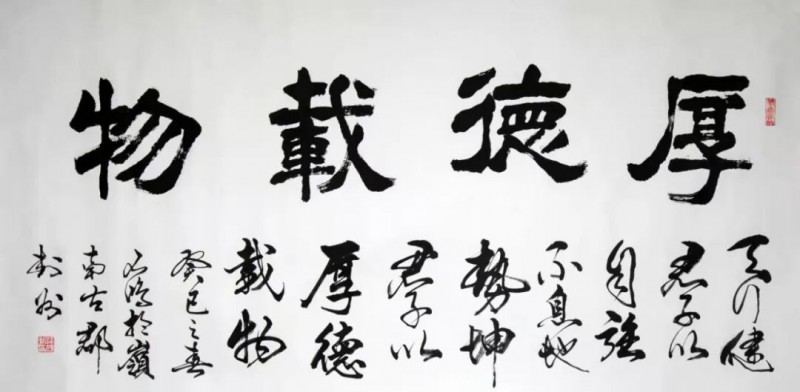 厚德載物
天行健
君子以
自強
不息地
勢坤
君子以
厚德
載物
癸巳之春
於嶺
南古郡